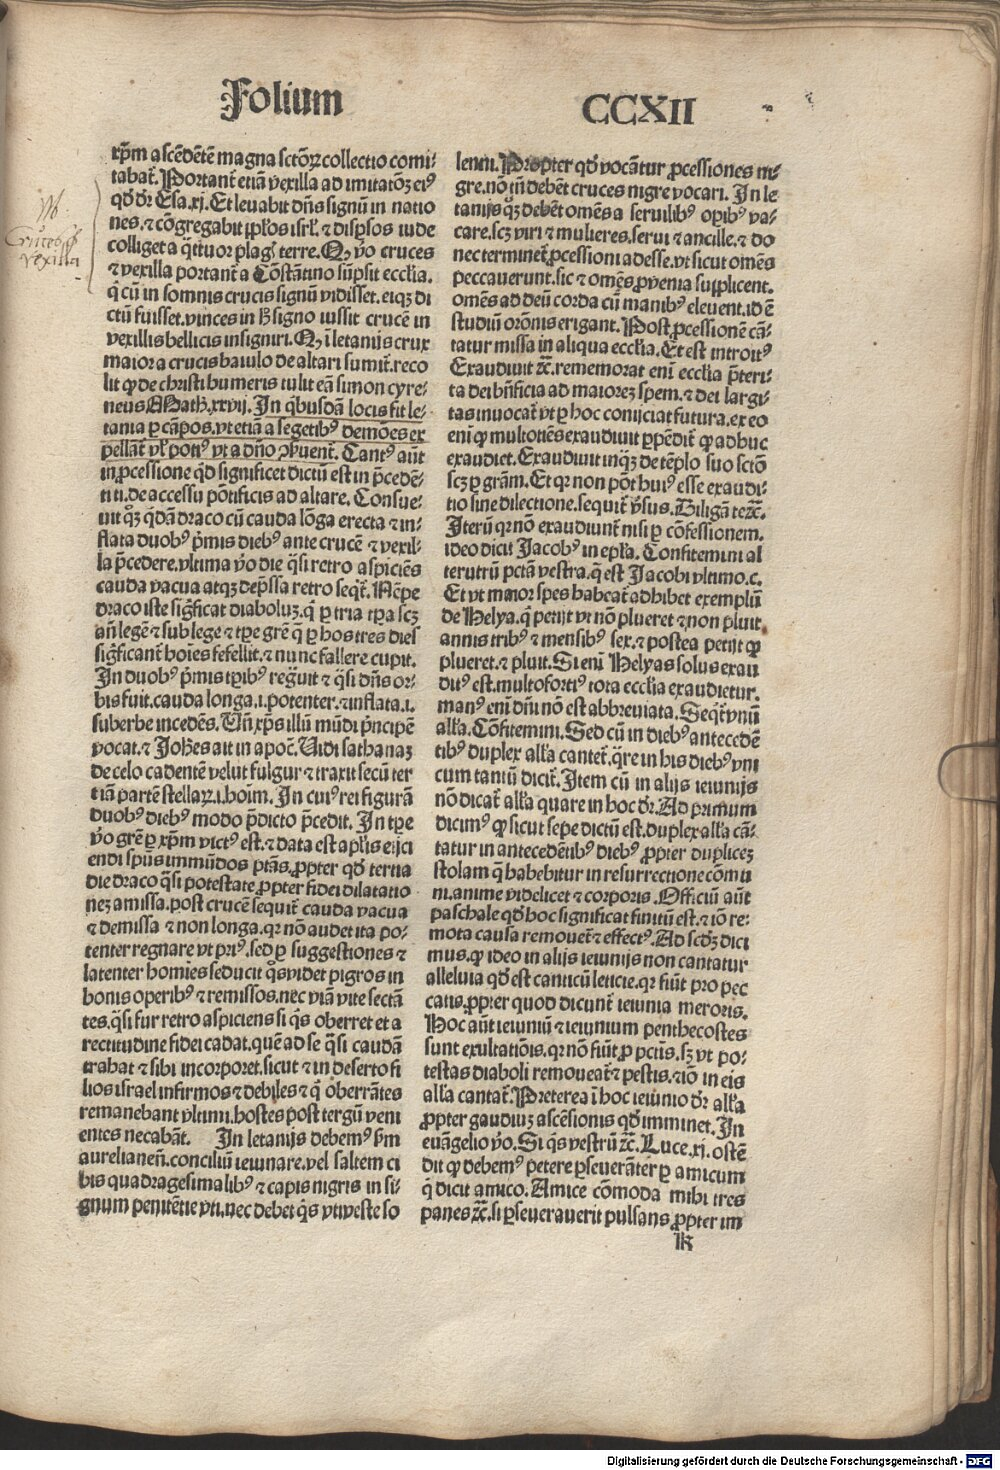 Folium CCXII
xp̄m ascēdētē magna sctōꝝ collectio comi⸗
tabat᷑. Portant᷑ etiā vexilla ad imitatōꝫ eiꝰ
qḋ dr̄ Esa.xj. Et levabit dn̄s signū in natio
nes. ⁊ cōgregabit ꝓfugos isrl̓. ⁊ disꝑsos iude
colliget a q̄ttuor plagꝭ terre. Qꝫ v̊o cruces
⁊ vexilla portant᷑ a Cōstātino sūpsit eccl̓ia.
q̇ cū in somnis crucis signū vidisset. eiqꝫ di
ctū fuisset. vinces in hͦ signo iussit crucē in
vexillis bellicis insigniri. Qꝫ ī letanijs crux
maior a crucis baiulo de altari sumit᷑. reco
lit ꝙ de christi humeris tulit eā simon cyre⸗
neus Math̓.xxvij. In q̇busdā locis fit le⸗
tania ꝑ cāpos. vt etiā a segetibꝰ demōes ex
pellāt᷑ vl̓ potiꝰ vt a dn̄o ꝯveniāt᷑. Cantꝰ aūt
in ꝓcessione qḋ significet dictū est in p̄cedē⸗
ti ti. de accessu pōtificis ad altare. Consue⸗
uit qꝫ q̇dā draco cū cauda lōga erecta ⁊ in⸗
flata duobꝰ p̄mis diebꝰ ante crucē ⁊ vexil⸗
la p̄cedere. vltima v̊o die q̄si retro aspiciēs
cauda vacua atqꝫ dep̄ssa retro seqͥt᷑. Nēpe
draco iste sig̓ficat diaboluꝫ. q̇ ꝑ tria tꝑa scꝫ
añ legē ⁊ sub lege ⁊ tꝑe gr̄e q̇ ꝑ hos tres dies
sig̓ficant᷑ hoīes fefellit. ⁊ nunc fallere cupit.
In duobꝰ p̄mis tꝑibꝰ regͣuit ⁊ q̄si dn̄s or⸗
bis fuit. cauda longa.i. potenter. ⁊ inflata.i.
suberbe incedēs. Uñ xp̄s illū mūdi p̄ncipē
vocat. ⁊ Joh̓es ait in apoc̄. Vidi sathanaꝫ
de celo cadentē velut fulgur ⁊ traxit secū ter
tiā partē stellaꝝ.i. hoīm. In cuiꝰ rei figurā
duobꝰ diebꝰ modo p̄dicto p̄cedit. In tꝑe
v̊o gr̄e ꝑ xp̄m victꝰ est. ⁊ data est apl̓is eijci
endi sp̄us immūdos ptās. ꝓpter qḋ tertia
die draco q̄si potestate ꝓpter fidei dilatatio
neꝫ amissa. post crucē sequit᷑ cauda vacua
⁊ demissa ⁊ non longa. qr nō audet ita po⸗
tenter regnare vt priꝰ. sed ꝑ suggestiones ⁊
latenter homies seducit q̊s videt pigros in
bonis operibꝰ ⁊ remissos. nec viā vite sectā
tes. q̄si fur retro aspiciens si q̇s oberret et a
rectitudine fidei cadat. quē ad se q̄si caudā
trahat ⁊ sibi incorporet. sicut ⁊ in deserto fi
lios israel infirmos ⁊ debiles ⁊ q̇ oberrātes
remanebant vltimi. hostes post tergū veni
entes necabāt. In letanijs debemꝰ ꝑm
aurelianeñ. conciliū ieiunare. vel saltem ci
bis quadragesimalibꝰ ⁊ capis nigris in si⸗
gnum penitētie vti. nec debet q̇s vti veste so
lenni. Propter qḋ vocātur ꝓcessiones ni⸗
gre. nō tn̄ debēt cruces nigre vocari. In le
tanijs qꝫ debēt omēs a servilibꝰ oꝑibꝰ va⸗
care. scꝫ viri ⁊ mulieres. servi ⁊ ancille. ⁊ do
nec terminet᷑ ꝓcessioni adesse. vt sicut omēs
peccauerunt. sic ⁊ omēs ꝓ venia supplicent.
omēs ad deū corda cū manibꝰ eleuent. id ē
studiū orōnis erigant. Post ꝓcessionē cā⸗
tatur missa in aliqua eccl̓ia. Et est introitꝰ
Exaudiuit ⁊c̄. rememorat eni eccl̓ia p̄teri⸗
ta dei bn̓ficia ad maioreꝫ spem. ⁊ dei largi⸗
tas inuocat᷑ vt ꝑ hoc conijciat futura. ex eo
eni ꝙ multotiēs exaudiuit ꝑpēdit᷑ ꝙ adhuc
exaudiet. Exaudiuit inqͥꝫ de tēplo suo sctō
scꝫ ꝑ grām. Et qr non pōt huiꝰ esse exaudi⸗
tio sine dilectione. sequit᷑ v̓sus. Diligā te ⁊c̄.
Iterū qr nō exaudiunt᷑ nisi ꝑ cōfessionem.
ideo dicit Jacobꝰ in epl̓a. Confitemini al
terutrū pctā vestra. q̄ est Jacobi vltimo. c.
Et vt maior spes habeat᷑ adhibet exemplū
de Helya. q̇ petijt vt nō plueret ⁊ non pluit
annis tribꝰ ⁊ mensibꝰ sex. ⁊ postea petijt ꝙ
plueret. ⁊ pluit. Si eni Helyas solus exau
ditꝰ est. multofortiꝰ tota eccl̓ia exaudietur.
manꝰ eni dn̄i nō est abbreuiata. Seqͥt᷑ vnū
all̓a. Cōfitemini. Sed cū in diebꝰ antecedē
tibꝰ duplex all̓a cantet᷑. q̄re in his diebꝰ vni
cum tantū dicit᷑. Item cū in alijs ieiunijs
nō dicat᷑ all̓a quare in hoc dr̄. Ad primum
dicimꝰ ꝙ sicut sepe dictū est. duplex all̓a cā⸗
tatur in antecedētibꝰ diebꝰ ꝓpter dupliceꝫ
stolam q̄ habebitur in resurrectione cōmu
ni. anime videlicet ⁊ corporis. Officiū aūt
paschale qḋ hoc significat finitū est. ⁊ iō re⸗
mota causa remouet᷑ ⁊ effectꝰ. Ad scḋꝫ dici
mus. ꝙ ideo in alijs ieiunijs non cantatur
alleluia qḋ est canticū leticie. qr fiūt pro pec
catis. ꝓpter quod dicunt᷑ ieiunia meroris.
Hoc aūt ieiuniū ⁊ ieiunium penthecostes
sunt exultatiōis. qr nō fiūt ꝓ pctīs. sꝫ vt po⸗
testas diaboli remoueat᷑ ⁊ pestis. ⁊ iō in eis
all̓a cantat᷑. Preterea ī hoc ieiunio dr̄ all̓a
ꝓpter gaudiuꝫ ascēsionis qḋ imminet. In
euāgelio v̊o. Si q̇s vestrū ⁊c̄. Luce.xj. ostē
dit ꝙ debemꝰ petere ꝑseuerāter ꝑ amicum
q̇ dicit amico. Amice cōmoda mihi tres
panes ⁊c̄. si ꝑseuerauerit pulsans ꝓpter im
k
Cruces
vexilla
Digitalisierung gefördert durch die Deutsche Forschungsgemeinschaft - DFG